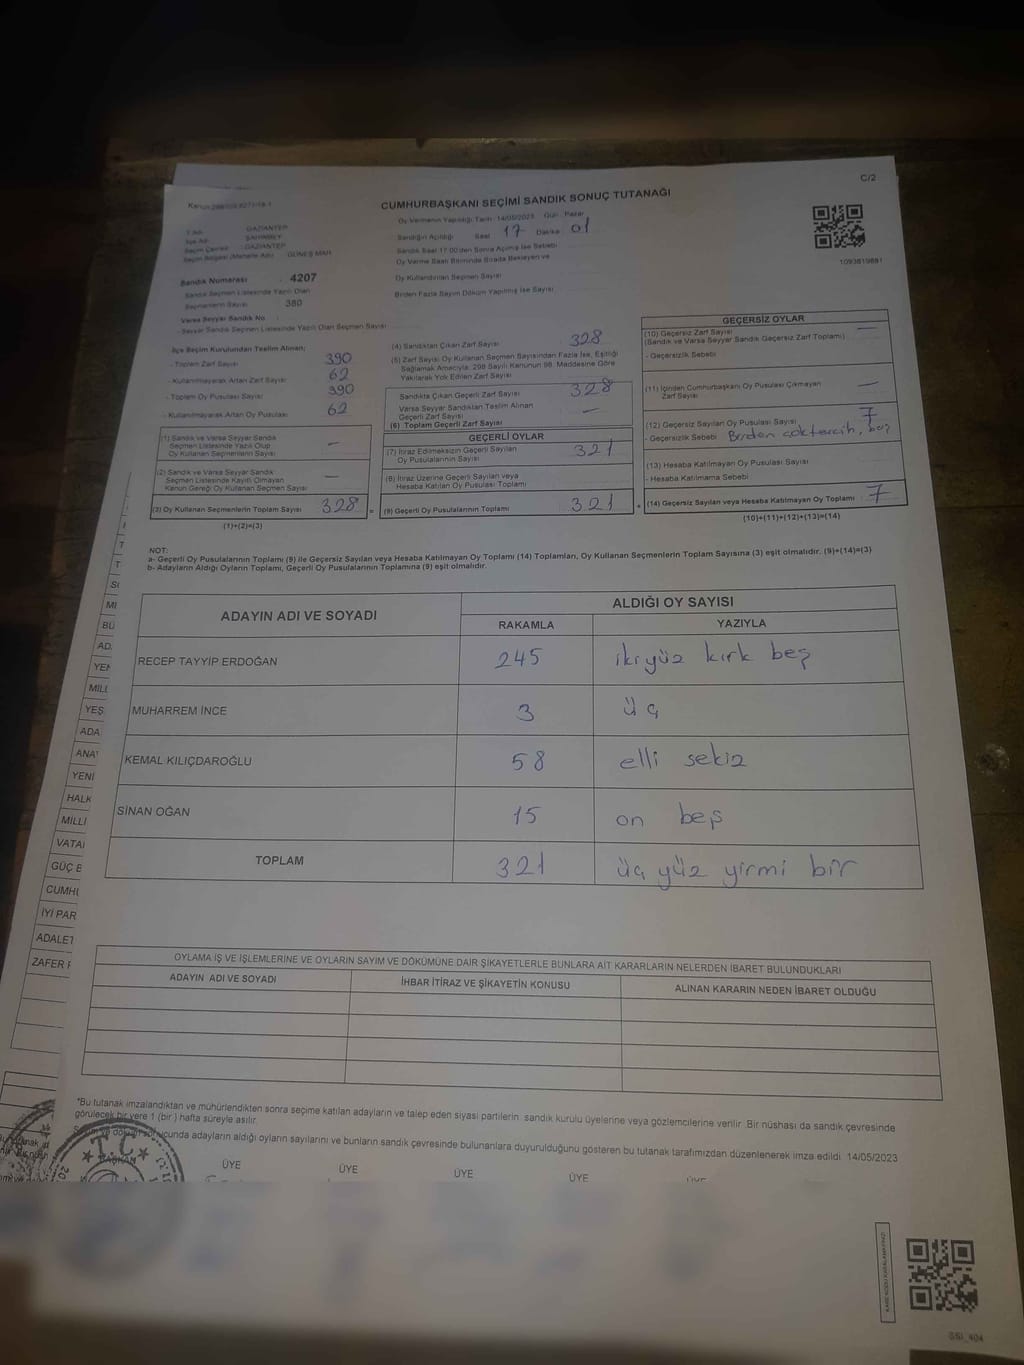 C/2
CUMHURBAŞKANI SEÇİMİ SANDIK SONUÇ TUTANAĞI
Oy Vermenin Yapıldığı Tarih 14/05/2023 Gün Pazar
Sandığın Açıldığı Saat 17 Dakika 01
Sandık Saat 17:00'den Sonra Açılmış İse Sebebi
Oy Verme Saati Bitiminde Sırada Bekleyen ve
Oy Kullandırılan Seçmen Sayısı
Birden Fazla Sayım Döküm Yapılmış İse Sayısı
1093819881
İl Adı GAZİANTEP
İlçe Adı ŞAHİNBEY
Seçim Çevresi GAZİANTEP
Seçim Bölgesi (Mahalle Adı) GÜNEŞ MAH
Sandık Numarası : 4207
Sandık Seçmen Listesinde Yazılı Olan
Seçmenlerin Sayısı 380
Varsa Seyyar Sandık No
- Seyyar Sandık Seçmen Listesinde Yazılı Olan Seçmen Sayısı
İlçe Seçim Kurulundan Teslim Alınan;
- Toplam Zarf Sayısı 390
- Kullanılmayarak Artan Zarf Sayısı 62
- Toplam Oy Pusulası Sayısı 390
- Kullanılmayarak Artan Oy Pusulası 62
(1) Sandık ve Varsa Seyyar Sandık
Seçmen Listesinde Yazılı Olup
Oy Kullanan Seçmenlerin Sayısı —
(2) Sandık ve Varsa Seyyar Sandık
Seçmen Listesinde Kayıtlı Olmayan
Kanun Gereği Oy Kullanan Seçmen Sayısı —
(3) Oy Kullanan Seçmenlerin Toplam Sayısı 328 =
(1)+(2)=(3)
(4) Sandıktan Çıkan Zarf Sayısı 328
(5) Zarf Sayısı Oy Kullanan Seçmen Sayısından Fazla İse, Eşitliği
Sağlamak Amacıyla, 298 Sayılı Kanunun 98. Maddesine Göre
Yakılarak Yok Edilen Zarf Sayısı
Sandıkta Çıkan Geçerli Zarf Sayısı 328
Varsa Seyyar Sandıktan Teslim Alınan
Geçerli Zarf Sayısı —
(6) Toplam Geçerli Zarf Sayısı
GEÇERLİ OYLAR
(7) İtiraz Edilmeksizin Geçerli Sayılan
Oy Pusulalarının Sayısı 321
(8) İtiraz Üzerine Geçerli Sayılan veya
Hesaba Katılan Oy Pusulası Toplamı
(9) Geçerli Oy Pusulalarının Toplamı 321 +
GEÇERSİZ OYLAR
(10) Geçersiz Zarf Sayısı —
(Sandık ve Varsa Seyyar Sandık Geçersiz Zarf Toplamı)
- Geçersizlik Sebebi
(11) İçinden Cumhurbaşkanı Oy Pusulası Çıkmayan
Zarf Sayısı —
(12) Geçersiz Sayılan Oy Pusulası Sayısı 7
- Geçersizlik Sebebi Birden çok tercih, boş
(13) Hesaba Katılmayan Oy Pusulası Sayısı
- Hesaba Katılmama Sebebi
(14) Geçersiz Sayılan veya Hesaba Katılmayan Oy Toplamı 7
(10)+(11)+(12)+(13)=(14)
NOT:
a- Geçerli Oy Pusulalarının Toplamı (9) ile Geçersiz Sayılan veya Hesaba Katılmayan Oy Toplamı (14) Toplamları, Oy Kullanan Seçmenlerin Toplam Sayısına (3) eşit olmalıdır. (9)+(14)=(3)
b- Adayların Aldığı Oyların Toplamı, Geçerli Oy Pusulalarının Toplamına (9) eşit olmalıdır.
ADAYIN ADI VE SOYADI ALDIĞI OY SAYISI
RAKAMLA YAZIYLA
RECEP TAYYİP ERDOĞAN 245 iki yüz kırk beş
MUHARREM İNCE 3 üç
KEMAL KILIÇDAROĞLU 58 elli sekiz
SİNAN OĞAN 15 on beş
TOPLAM 321 üç yüz yirmi bir
OYLAMA İŞ VE İŞLEMLERİNE VE OYLARIN SAYIM VE DÖKÜMÜNE DAİR ŞİKAYETLERLE BUNLARA AİT KARARLARIN NELERDEN İBARET BULUNDUKLARI
ADAYIN ADI VE SOYADI İHBAR İTİRAZ VE ŞİKAYETİN KONUSU ALINAN KARARIN NEDEN İBARET OLDUĞU
*Bu tutanak imzalandıktan ve mühürlendikten sonra seçime katılan adayların ve talep eden siyasi partilerin sandık kurulu üyelerine veya gözlemcilerine verilir. Bir nüshası da sandık çevresinde
görülecek bir yere 1 (bir) hafta süreyle asılır.
Sayım ve döküm sonucunda adayların aldığı oyların sayılarını ve bunların sandık çevresinde bulunanlara duyurulduğunu gösteren bu tutanak tarafımızdan düzenlenerek imza edildi. 14/05/2023
T.C.
BAŞKAN
ÜYE ÜYE ÜYE ÜYE ÜYE
MI
BÜ
AD
YEN
MİLL
YEŞ
ADA
ANA
YENİ
HALK
MİLLİ
VATA
GÜÇ B
CUMHU
İYİ PAR
ADALET
ZAFER P
SSI_404